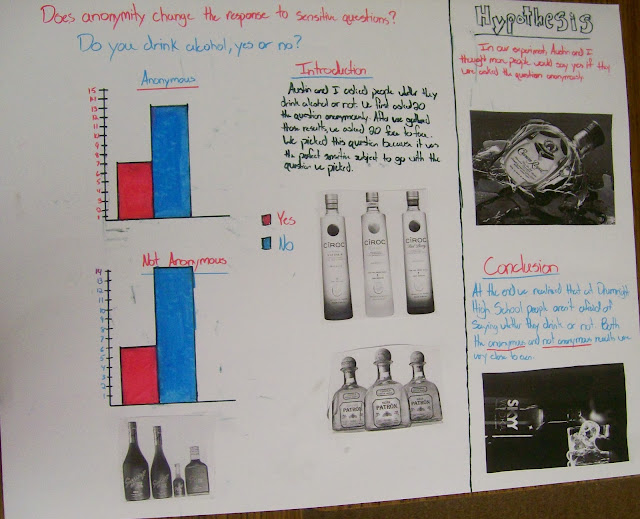 Does anonymity change the response to sensitive questions?
Do you drink alcohol, yes or no?
Anonymous
15
14
13
12
11
10
9
8
7
6
5
4
3
2
1
Not Anonymous
14
13
12
11
10
9
8
7
6
5
4
3
2
1
Yes
No
Introduction
Austin and I asked people whether they
drink alcohol or not. We first asked 20
the question anonymously. After we gathered
those results, we asked 20 face to face.
We picked this question because it was
the perfect sensitive subject to go with the
question we picked.
CÎROC CÎROC CÎROC
PATRÓN PATRÓN PATRÓN
Hypothesis
In our experiment, Austin and I
thought more people would say yes if they
were asked the question anonymously.
Crown Royal
Conclusion
At the end we realized that at Drumright
High School people aren't afraid of
saying whether they drink or not. Both
the anonymous and not anonymous results were
very close to even.
SKYY